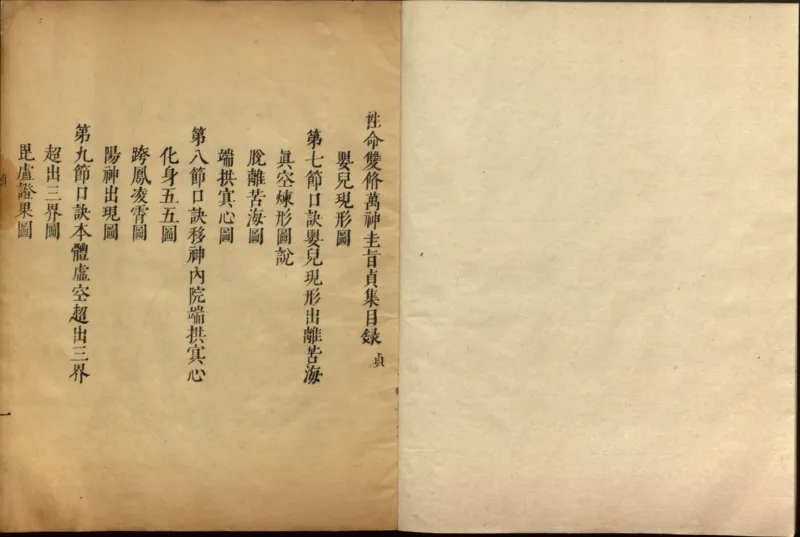 性命雙脩萬神圭旨貞集目録 貞
嬰兒現形圖
第七節口訣嬰兒現形出離苦海
眞空煉形圖說
脫離苦海圖
端拱冥心圖
第八節口訣移神內院端拱冥心
化身五五圖
跨鳳凌霄圖
陽神出現圖
第九節口訣本體虛空超出三界
超出三界圖
毘盧證果圖
貞
一